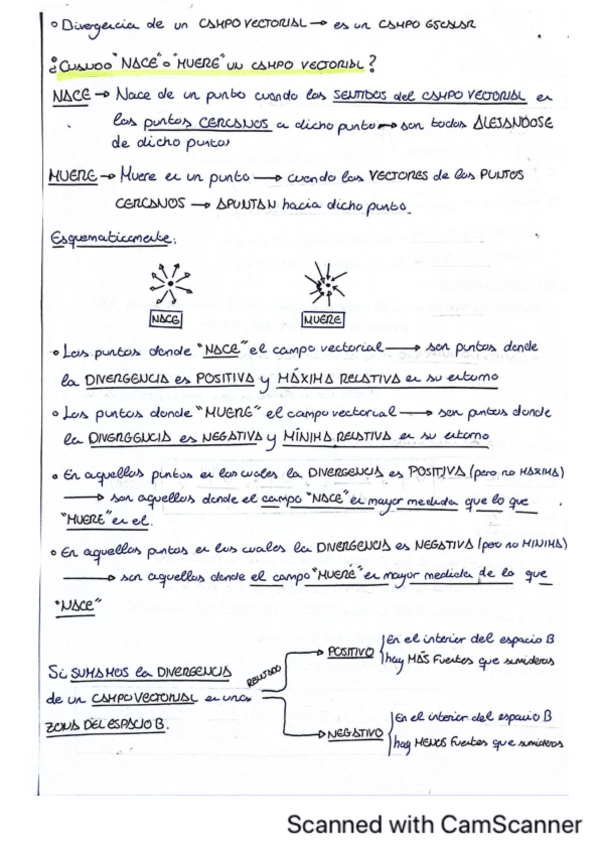 ° Divergencia de un CAMPO VECTORIAL → es un CAMPO ESCALAR
¿CUANDO "NACE" o "MUERE" UN CAMPO VECTORIAL?
NACE → Nace de un punto cuando los SENTIDOS del CAMPO VECTORIAL en
los puntos CERCANOS a dicho punto → son todos ALEJANDOSE
de dicho punto
MUERE → Muere en un punto → cuando los VECTORES de los PUNTOS
CERCANOS → APUNTAN hacia dicho punto.
Esquematicamente:
NACE MUERE
• Los puntos donde "NACE" el campo vectorial → son puntos donde
la DIVERGENCIA es POSITIVA y MÁXIMA RELATIVA en su entorno
• Los puntos donde "MUERE" el campo vectorial → son puntos donde
la DIVERGENCIA es NEGATIVA y MÍNIMA RELATIVA en su entorno
• En aquellos puntos en los cuales la DIVERGENCIA es POSITIVA (pero no MAXIMA)
→ son aquellos donde el campo "NACE" en mayor medida que lo que
"MUERE" en el.
• En aquellos puntos en los cuales la DIVERGENCIA es NEGATIVA (pero no MINIMA)
→ son aquellos donde el campo "MUERE" en mayor medida de lo que
"NACE"
Si SUMAMOS la DIVERGENCIA
de un CAMPO VECTORIAL en una
ZONA DEL ESPACIO B.
RESULTADO
POSITIVO
En el interior del espacio B
hay MÁS Fuentes que sumideros
NEGATIVO
En el interior del espacio B
hay MENOS Fuentes que sumideros
Scanned with CamScanner